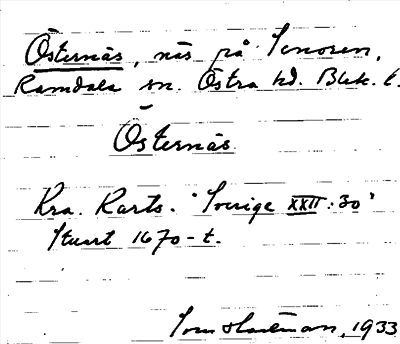 Östernäs, näs på Senoren,
Ramdala sn. Östra hd. Blek. l.
Östernäs
Kra. Karts. "Sverige XXII:30"
Stuart 1670-t.
1933